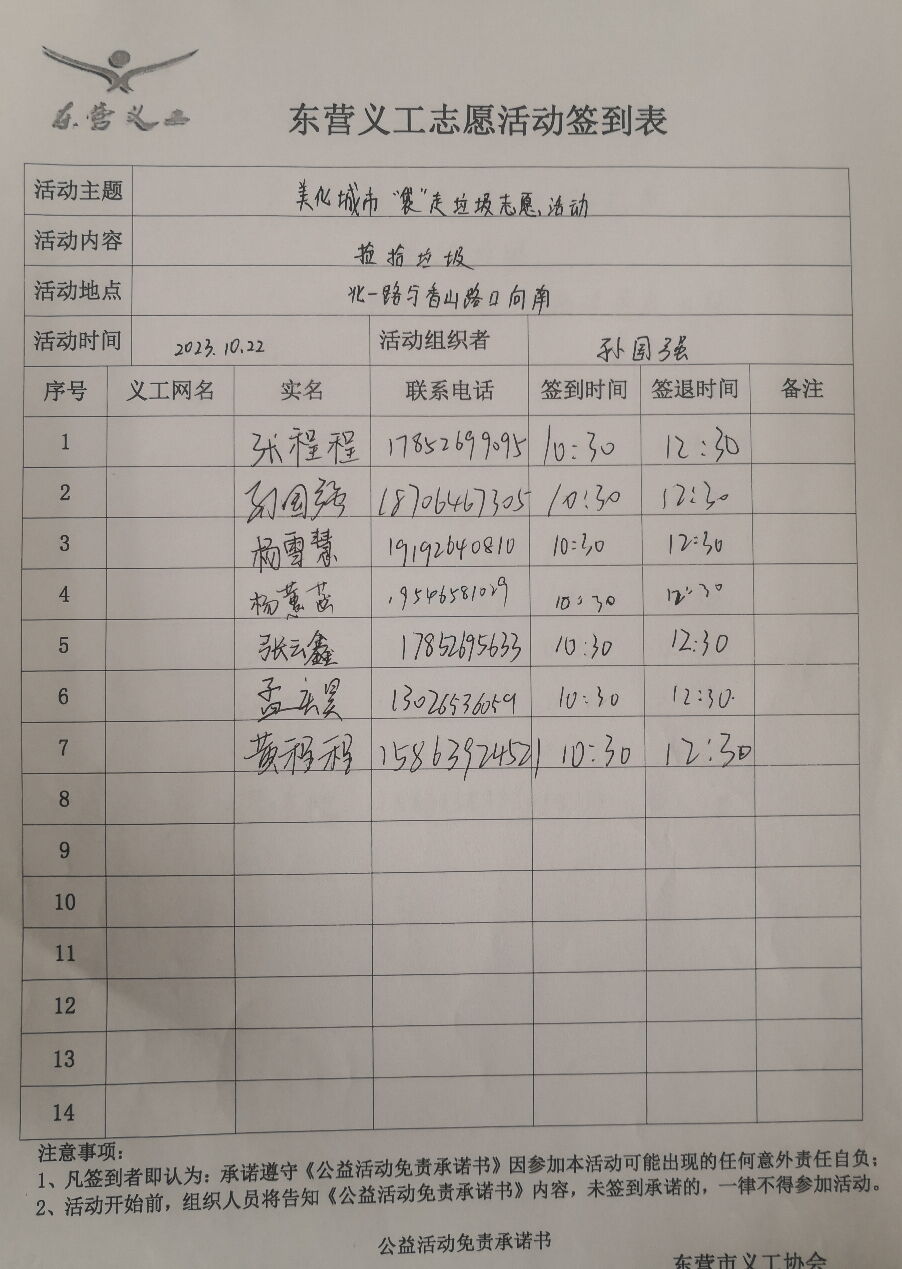 东营义工
东营义工志愿活动签到表
活动主题 美化城市“袋”走垃圾志愿活动
活动内容 捡拾垃圾
活动地点 北一路与香山路口向南
活动时间 2023.10.22 活动组织者 孙国强
序号 义工网名 实名 联系电话 签到时间 签退时间 备注
1 张程程 17852699095 10:30 12:30
2 孙国强 18706467305 10:30 12:30
3 杨雪慧 19192640810 10:30 12:30
4 杨蕙茁 19546581029 10:30 12:30
5 张云鑫 17852695633 10:30 12:30
6 孟庆昊 13026536059 10:30 12:30
7 黄程程 15863924521 10:30 12:30
8
9
10
11
12
13
14
注意事项:
1、凡签到者即认为:承诺遵守《公益活动免责承诺书》因参加本活动可能出现的任何意外责任自负;
2、活动开始前,组织人员将告知《公益活动免责承诺书》内容,未签到承诺的,一律不得参加活动。
公益活动免责承诺书
东营市义工协会